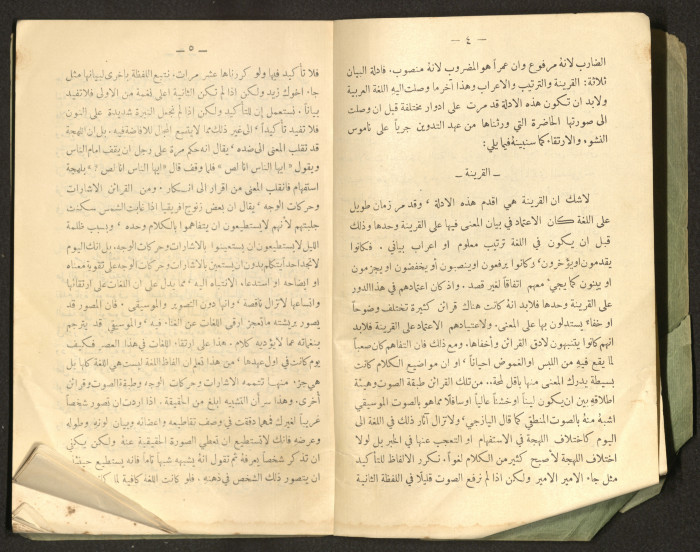 — ٤ —
الضارب لانهُ مرفوع وان عمراً هو المضروب لانهُ منصوب. فادلة البيان
ثلاثة: القرينة والترتيب والاعراب وهذا آخر ما وصلت اليهِ اللغة العربية
ولابد ان تكون هذه الادلة قد مرت على ادوار مختلفة قبل ان وصلت
الى صورتها الحاضرة التي ورثناها من عهد التدوين جرياً على ناموس
النشوء والارتقاء كما سنبينهُ فيما يلي:
— القرينة —
لاشك ان القرينة هي اقدم هذه الادلة ، وقد مر زمان طويل
على اللغة كان الاعتماد في بيان المعنى فيها على القرينة وحدها وذلك
قبل ان يكون في اللغة ترتيب معلوم او اعراب بياني . فكانوا
يقدمون او يؤخرون، وكانوا يرفعون او ينصبون او يخفضون او يجزمون
او يبنون كما يجيء معهم اتفاقاً لغير قصد . واذ كان اعتمادهم في هذا الدور
على القرينة وحدها فلابد انهُ كانت هناك قرائن كثيرة تختلف وضوحاً
او خفاء يستدلون بها على المعنى. ولاعتيادهم الاعتماد على القرينة فلابد
انهم كانوا يتنبهون لادق القرائن وأخفاها. ومع ذلك فان التفاهم كان صعباً
لما يقع فيهِ من اللبس او الغموض احياناً ، او ان مواضيع الكلام كانت
بسيطة يدرك المعنى منها باقل لمحة.. من تلك القرائن طبقة الصوت وهيئة
اطلاقهِ بين ان يكون لينًا او خشناً عالياً او سافلاً مما هو بالصوت الموسيقي
اشبهُ منهُ بالصوت المنطقي كما قال اليازجي، ولا تزال آثار ذلك في اللغة الى
اليوم كاختلاف اللهجة في الاستفهام او التعجب عنها في الخبر بل لولا
اختلاف اللهجة لأصبح كثير من الكلام لغواً. نكرر الالفاظ للتأكيد
مثل جاء الامير الامير ولكن اذا لم نرفع الصوت قليلاً في اللفظة الثانية
— ٥ —
فلا تأكيد فيها ولو كررناها عشر مرات. نتبع اللفظة باخرى لبيانها مثل
جاء اخوك زيد ولكن اذا لم تكن الثانية اعلى نغمة من الاولى فلا تفيد
بياناً . نستعمل إن للتأكيد ولكن اذا لم نجعل النبرة شديدة على النون
فلا تفيد تأكيداً ، الى غير ذلك مما لا يتسع المجال للافاضة فيهِ. بل ان اللهجة
قد تقلب المعنى الى ضده ، يقال انهُ حكم مرة على رجل ان يقف امام الناس
ويقول « ايها الناس انا لص » فلما وقف قال « ايها الناس انا لص ? » بلهجة
استفهام فانقلب المعنى من اقرار الى انكار . ومن القرائن الاشارات
وحركات الوجه ، يقال ان بعض زنوج افريقيا اذا غابت الشمس سكنت
جلبتهم لأنهم لا يستطيعون ان يتفاهموا بالكلام وحده ، وبسبب ظلمة
الليل لا يستطيعون ان يستعينوا بالاشارات وحركات الوجه، بل انك اليوم
لا تجد احداً يتكلم بدون ان يستعين بالاشارات وحركات الوجه على تقوية معناه
او ايضاحه او استدعاء الانتباه اليه ، مما يدل على ان اللغات على ارتقائها
واتساعها لا تزال ناقصة ، وانها دون التصوير والموسيقى . فان المصور قد
يصور بريشتهِ ما تعجز ارقى اللغات عن الغناء فيه ، والموسيقي قد يترجم
بنغماته عما لا يؤديه كلام . هذا على ارتقاء اللغات في هذا العصر فكيف
يوم كانت في اول عهدها ، من هذا تعلم ان الفاظ اللغة ليست هي اللغة كلها بل
هي جزء منها تتممه الاشارات وحركات الوجه وطبقة الصوت وقرائن
أخرى. وهذا سر أن التشبيه ابلغ من الحقيقة. اذا اردت ان تصور شخصاً
غريباً لغيرك فمهما دققت في وصف تقاطيعه واعضائه وبيان لونه وطوله
وعرضه فانك لا تستطيع ان تعطي الصورة الحقيقية عنهُ ولكن يكفي
ان تذكر شخصاً يعرفهُ ثم تقول انهُ يشبهه شبهاً تاماً فانه يستطيع حينئذ
ان يتصور ذلك الشخص في ذهنه . فلو كانت اللغة كافية لما